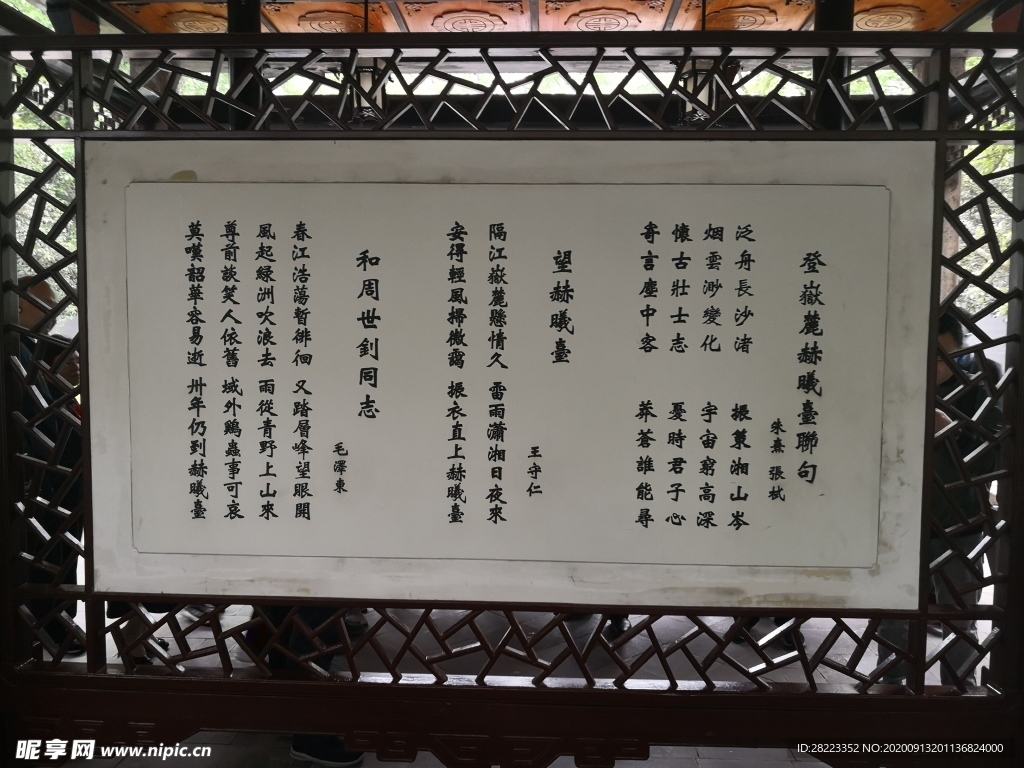 登嶽麓赫曦臺聯句
朱熹 張栻
泛舟長沙渚 振策湘山岑
烟雲渺變化 宇宙窮高深
懷古壯士志 憂時君子心
寄言塵中客 莽蒼誰能尋
望赫曦臺
王守仁
隔江嶽麓懸情久 雷雨瀟湘日夜來
安得輕風掃微靄 振衣直上赫曦臺
和周世釗同志
毛澤東
春江浩蕩暫徘徊 又踏層峰望眼開
風起綠洲吹浪去 雨從青野上山來
尊前談笑人依舊 域外鷄蟲事可哀
莫嘆韶華容易逝 卅年仍到赫曦臺
昵享网 www.nipic.cn
ID:28223352 NO:20200913201136824000